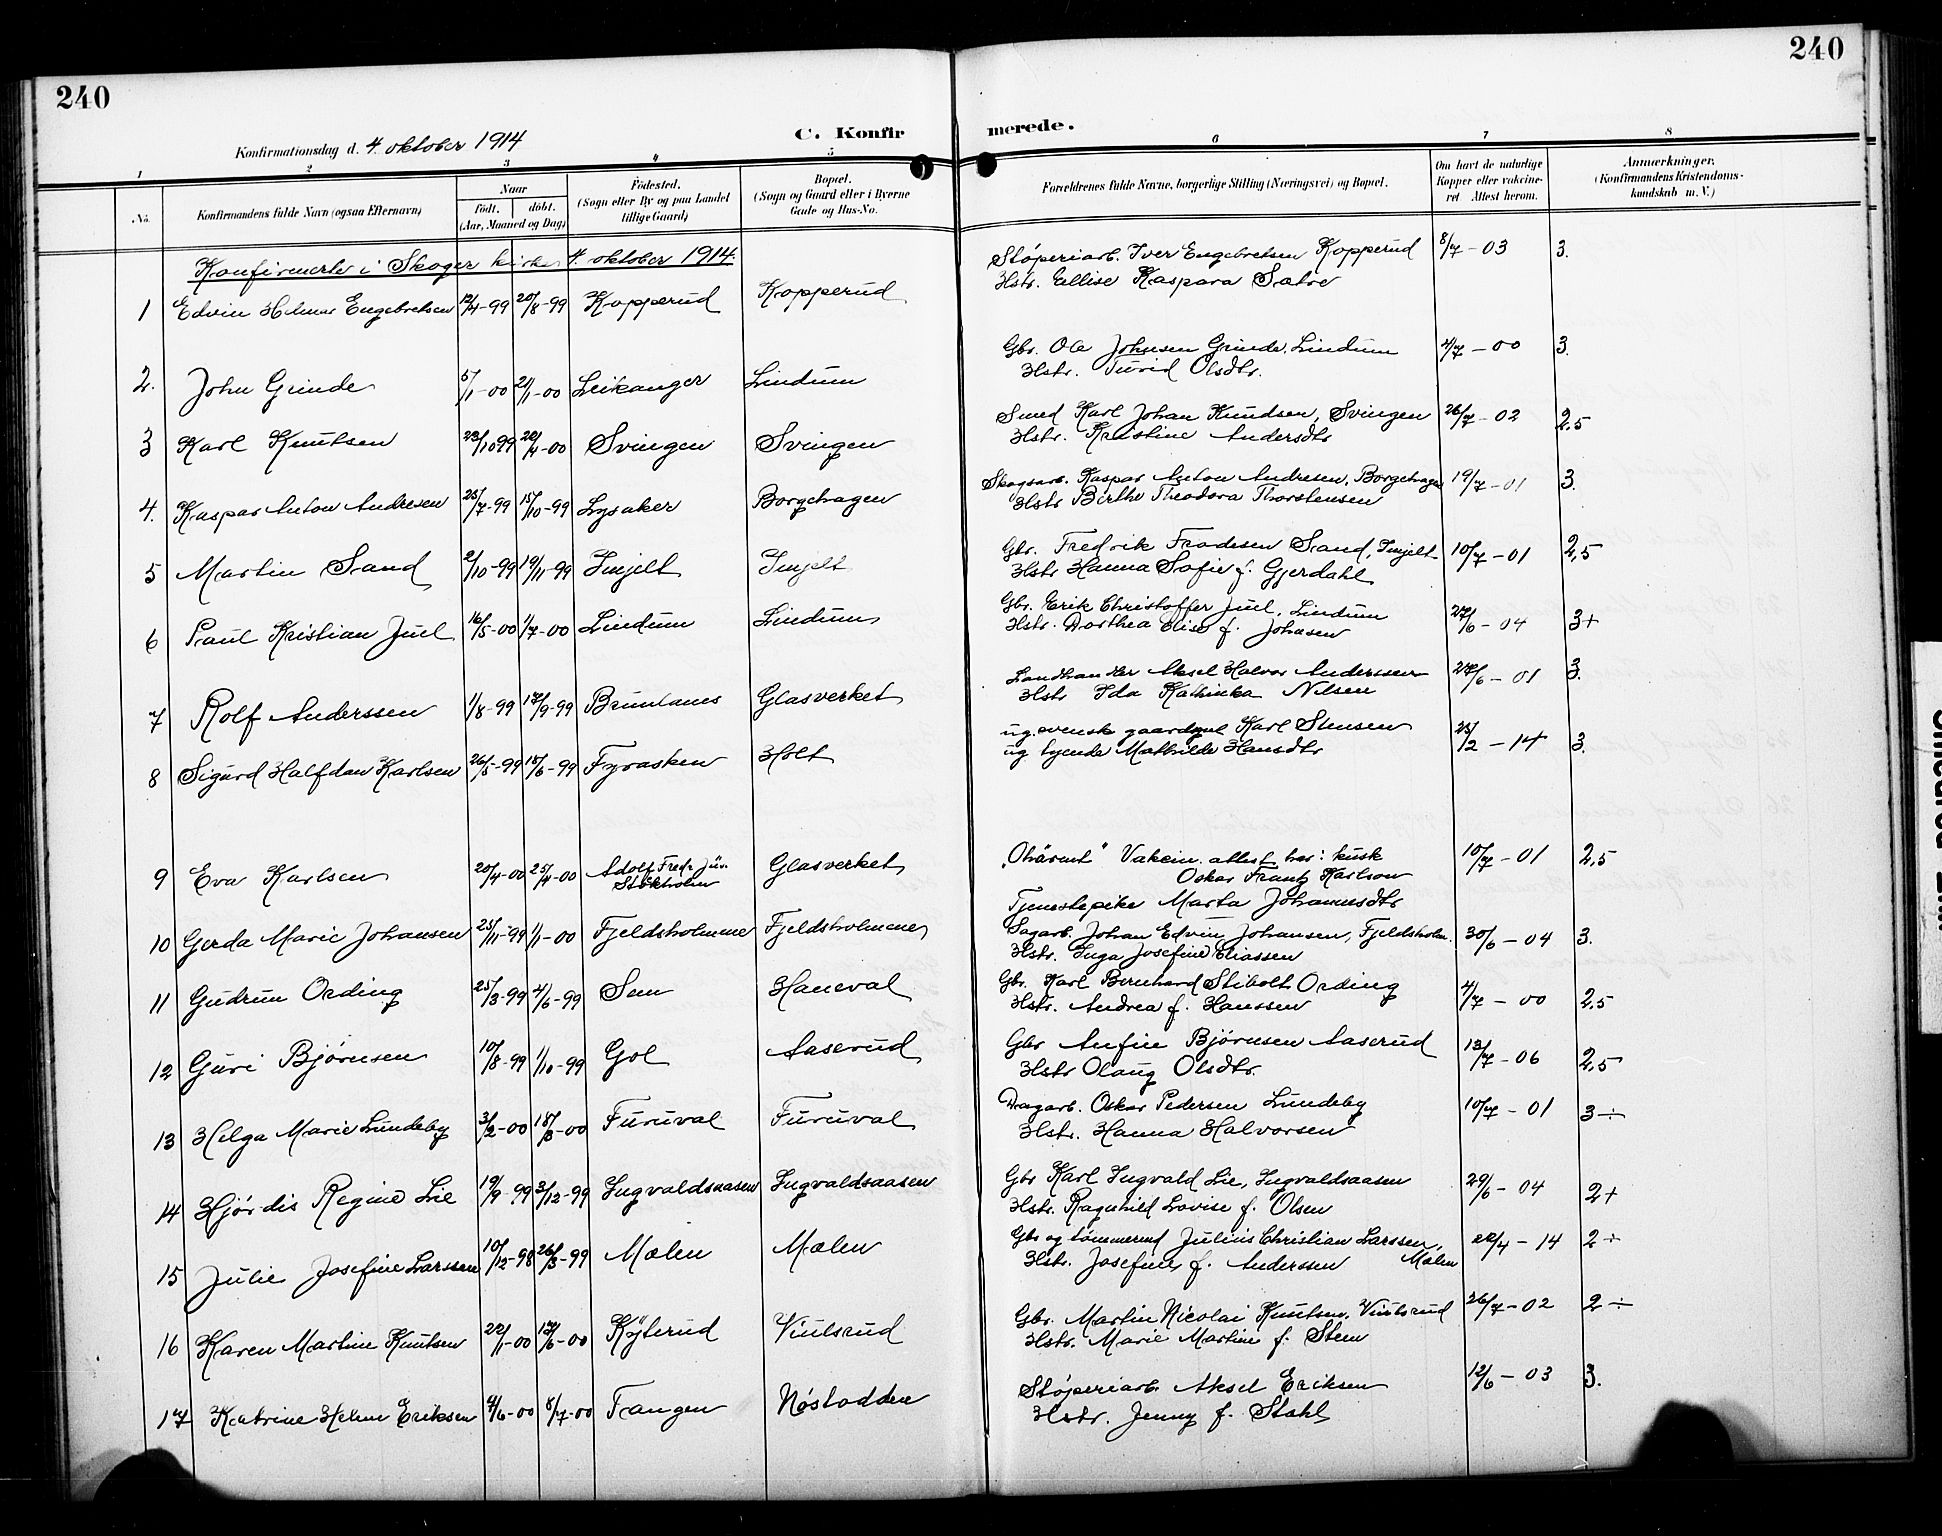 240
240
C. Konfirmerede.
Konfirmationsdag d. 4. oktober 1914
1 2 3 4 5 6 7 8
No. Konfirmandens fulde Navn (ogsaa Efternavn) Naar födt. döbt. (Aar, Maaned og Dag) Födested. (Sogn eller By og paa Landet tillige Gaard) Bopæl. (Sogn og Gaard eller i Byerne Gade og Hus-No. Forældrenes fulde Navne, borgerlige Stilling (Næringsvei) og Bopæl. Om havt de naturlige Kopper eller vakcineret Attest herom. Anmærkninger. (Konfirmandens Kristendomskundskab m. V.)
Konfirmerte i Skoger kirke 4. oktober 1914.
1 Edvin Helmer Engebretsen 12/4-99 20/8-99 Kopperud Kopperud Støperiarb. Iver Engebretsen Kopperud 8/7-03 3.
Hstr. Ellise Kaspara Sætre
2. John Grinde 5/1-00 21/1-00 Leikanger Lindum Gbr. Ole Johnsen Grinde, Lindum 4/7-00 3.
Hstr. Turid Olsdtr.
3 Karl Knutsen 23/10 99 22/4-00 Svingen Svingen Smed Karl Johan Knudsen, Svingen 26/7-02 2,5
Hstr. Kristine Andersdtr
4. Kaspar Anton Andresen 25/7-99 15/10-99 Lysaker Borgehagen Skogsarb. Kaspar Anton Andresen, Borgehagen 19/7-01 3.
Hstr Birthe Theodora Thorstensen
5 Martin Sand 2/10-99 19/11-99 Imjelt Imjelt Gbr. Fredrik Sand, Imjelt 10/7-01 2,5
Hstr Hanna Sofie f. Gjerdahl
6 Paul Kristian Juel 16/5-00 1/7-00 Lindum Lindum Gbr. Erik Christoffer Juul, Lindum 27/6-04 3+
Hstr. Dorthea Elise f. Johnsen
7 Rolf Anderssen 1/8-99 17/9-99 Brunlanes Glasverket Landhandler Aksel Halvor Anderssen 27/6-01 3.
Hstr Ida Kathinka Nilsen
8 Sigurd Halfdan Karlsen 26/5-99 18/6-99 Fyrasken Holt ug. svensk gaardgut Karl Stensen 23/2-14 3.
ug tyende Mathilde Hansdtr
9 Eva Karlsen 20/4-00 25/4-00 Adolf Fredr. Stokholm Glasverket „Okäent" Vakcin. attest har: kusk 10/7-01 2,5
Oskar Frantz Karlson
Tjenestepike Marta Johannesdtr
10 Gerda Marie Johansen 25/11-99 1/1-00 Fjeldsholmene Fjeldsholmene Sagarb. Johan Edvin Johansen, Fjeldsholm. 30/6-04 3.
Hstr. Inga Josefine Eliassen
11 Gudrun Ording 25/3-99 4/6-99 Sem Haneval Gbr. Karl Bernhard Stibolt Ording 4/7-00 2,5
Hstr. Andrea f. Hanssen
12 Guri Bjørnsen 10/8-99 1/10-99 Gol Aaserud Gbr Anfin Bjørnsen Aaserud 13/7-06 2,5
Hstr Olaug Olsdtr.
13 Helga Marie Lundeby 3/2-00 18/3-00 Furuval Furuval Dagarb. Oskar Pedersen Lundeby 10/7-01 3÷
Hstr. Hanna Halvorsen
14 Hjørdis Regine Lie 19/9-99 3/12-99 Ingvaldsaasen Ingvaldsaasen Gbr Karl Ingvald Lie, Ingvaldsaasen 29/6-04 2+
Hstr. Ragnhild Lovise f. Olsen
15 Julie Josefine Larssen 10/12-98 26/3-99 Mælen Mælen Gbr og tømmermd Julius Christian Larssen, 22/4-14 2÷
Hstr. Josefine f. Anderssen Mælen
16 Karen Martine Knutsen 22/1-00 17/6-00 Kyterud Viulsrud Gbr. Martin Nicolai Knutsen, Viulsrud 26/7-02 2÷
Hstr. Marie Martine f. Stem
17 Katrine Helene Eriksen 4/6-00 8/7-00 Tangen Nøstodden Støperiarb. Aksel Eriksen 12/6-03 3.
Hstr. Jenny f. Stahl